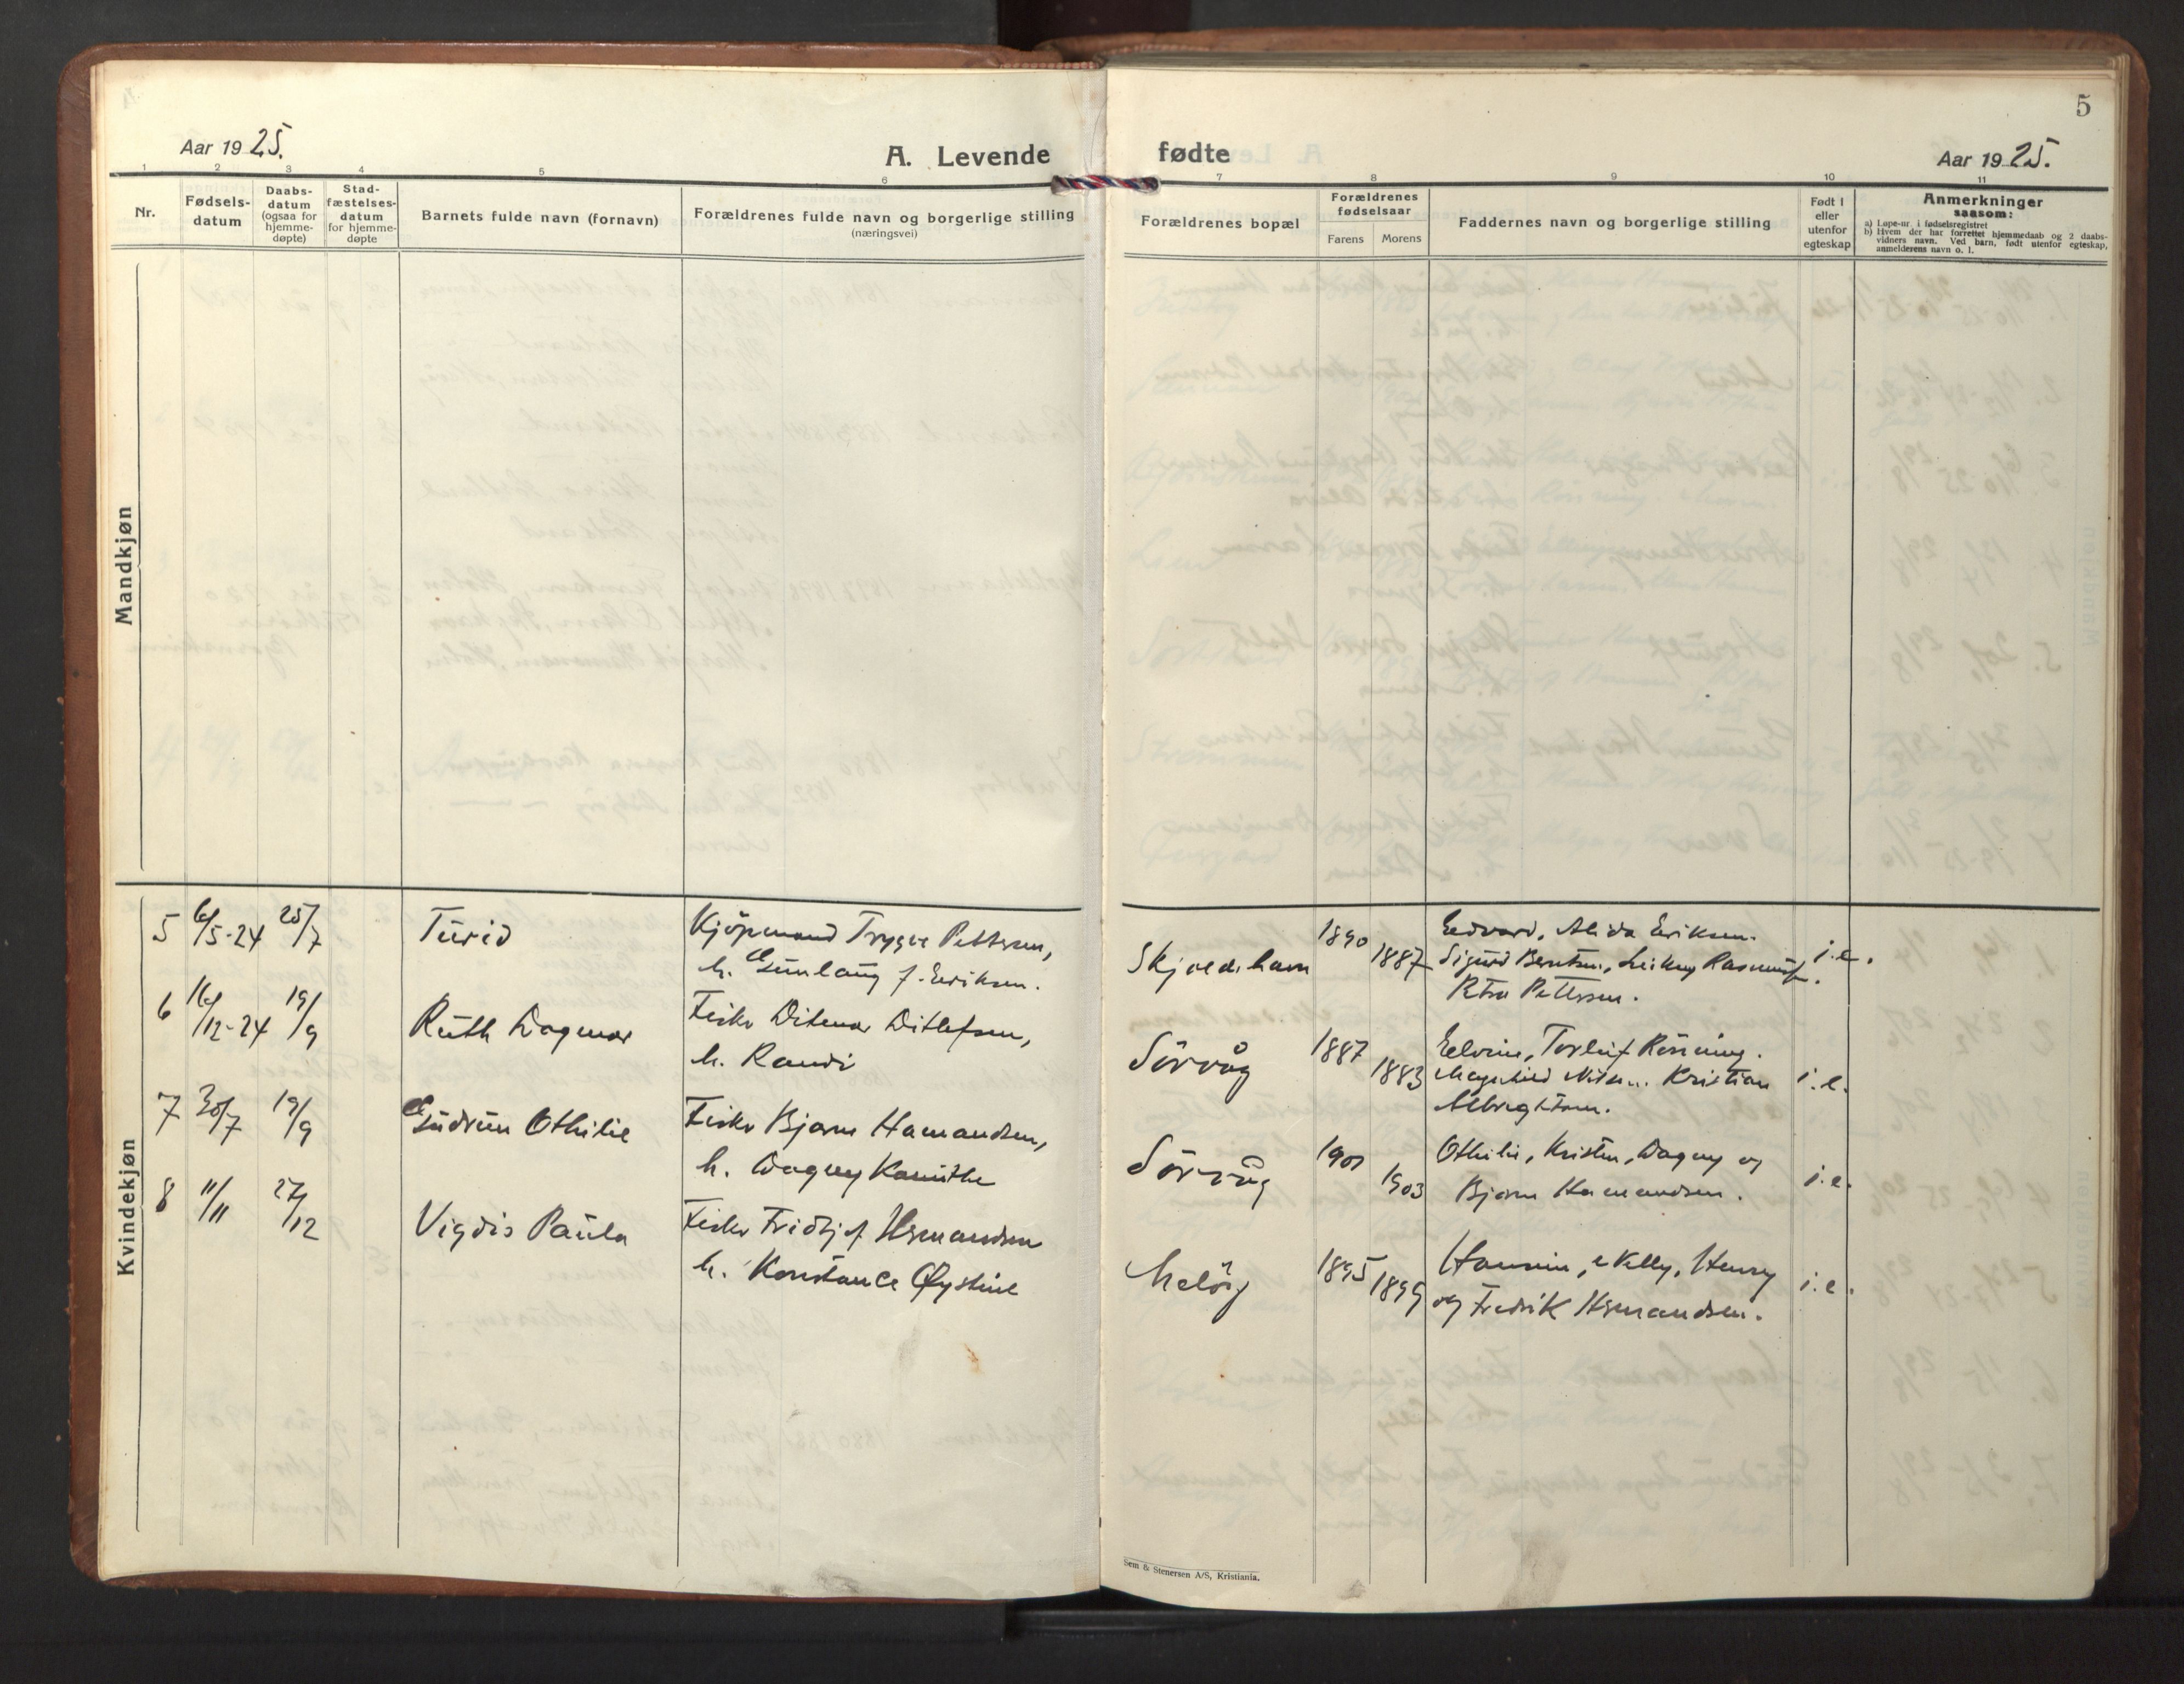 5
Aar 1925.
A. Levende
fødte
Aar 1925.
1 2 3 4 5 6 7 8 9 10 11
Nr.
Fødsels-
datum
Daabs-
datum
(ogsaa for
hjemme-
døpte)
Stad-
fæstelses-
datum
for hjemme-
døpte
Barnets fulde navn (fornavn)
Forældrenes fulde navn og borgerlige stilling
(næringsvei)
Forældrenes bopæl
Forældrenes
fødselsaar
Farens Morens
Faddernes navn og borgerlige stilling
Født i
eller
utenfor
egteskap
Anmerkninger
saasom:
a) Løpe-nr. i fødselsregistret
b) Hvem der har forrettet hjemmedaab og 2 daabs-
vidners navn. Ved barn, født utenfor egteskap,
anmelderens navn o. l.
Mandkjøn
Kvindekjøn
5 6/5-24 25/7 Turid
Kjöpmand Trygve Pettersen,
h. Gunlaug f. Eriksen.
1890 1887
Edvard, Alida Eriksen.
Sigurd Berntsen,
Petra Pettersen.
i.e.
6 16/12-24 19/9 Ruth Dagmar
Fisker Ditmar Ditlefsen,
h. Randi
Sörvåg 1887 1883
Torleif Rönning.
Magnhild Kristian
Albrigtsen.
i.e.
7 30/7 19/9 Gudrun Othilie
Fisker Bjarne Hamandsen,
h. Dagny
Sörvåg 1901 1903
Othilie, Kristen, Dagny og
Bjarne Hamandsen.
i.e.
8 11/11 27/12 Vigdis Paula
Fisker Fridtjof Hermandsen
h. Konstance Øystine
Melöy 1895 1899
Nelly, Henry
og Fredrik Hermandsen.
i.e.
Sem & Stenersen A/S, Kristiania.